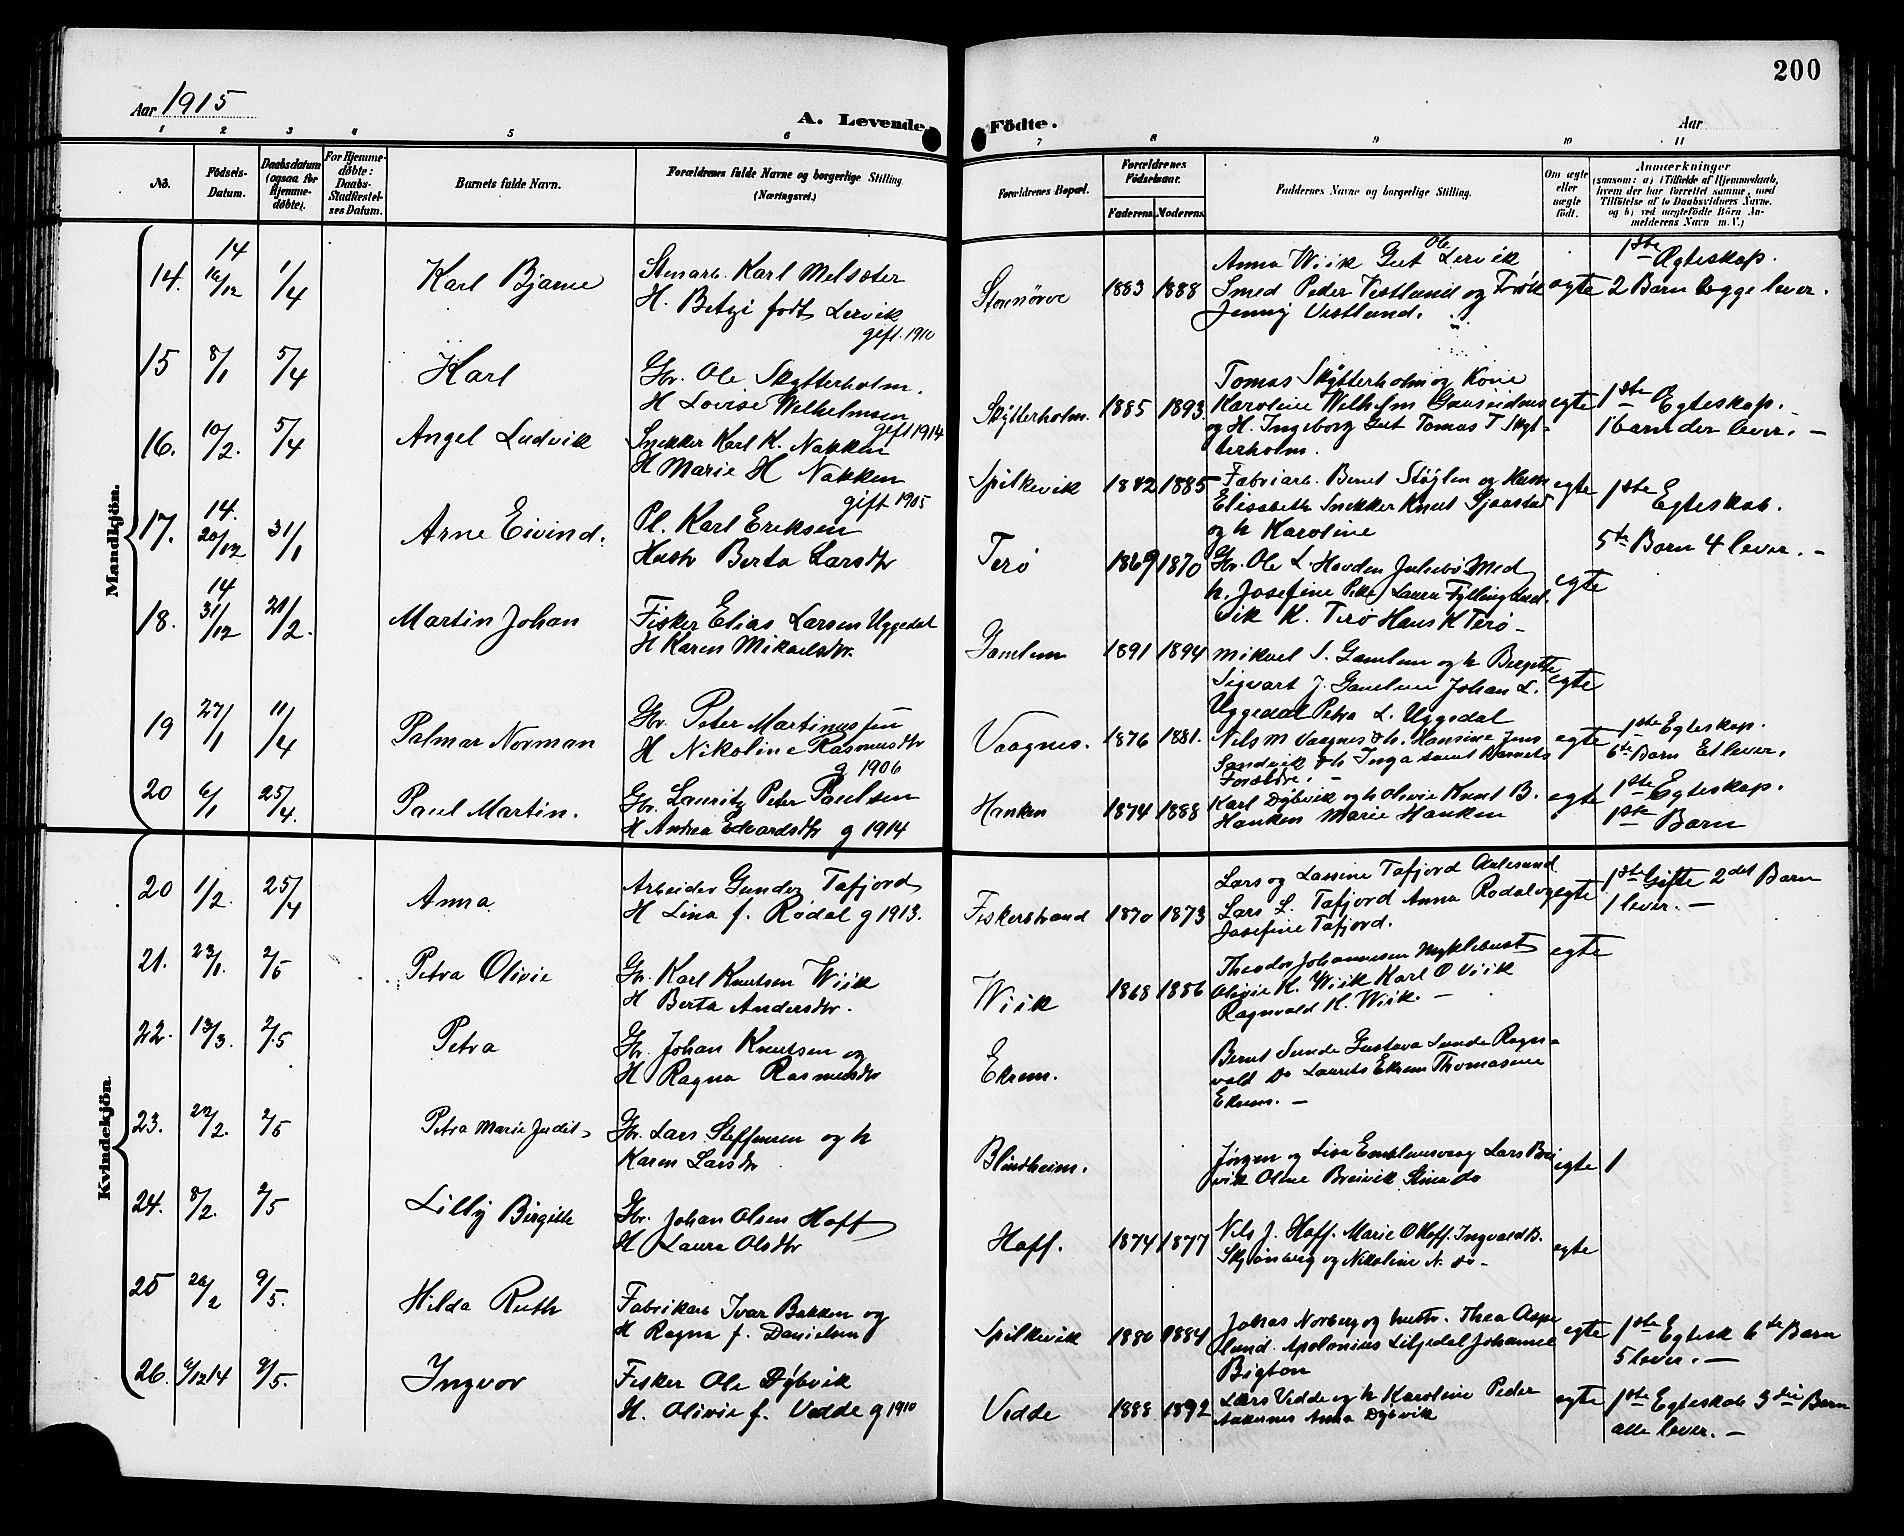 200
Aar 1915
A. Levende
Födte.
Aar
1 2 3 4 5 6
7 8 9 10 11
No.
Födsels-
Datum.
Daabsdatum
(ogsaa for
Hjemme-
döbte).
For Hjemme-
döbte:
Daabs-
Stadfæstel-
ses Datum.
Barnets fulde Navn.
Forældrenes fulde Navne og borgerlige Stilling
(Næringsvei.)
Forældrenes Bopæl.
Forældrenes
Födselsaar.
Faderens
Moderens.
Faddernes Navne og borgerlige Stilling.
Om ægte
eller
uægte
födt.
Anmærkninger
(saasom: a) i Tilfælde af Hjemmedaab,
hvem der har forrettet samme, med
Tilföielse af to Daabsvidners Navne,
og b) ved uægtefödte Börn An-
melderens Navn m. V.)
Mandkjön.
14. 14 16/12 1/4 Karl Bjarne
Stenarb. Karl Melsæter
H. Betzi födt Lervik
gift. 1910
Stornörve 1883 1888
Anna Wiik Gut Ole Lervik
Smed Peder Vestlund og Frök
Jenny Vestlund.
egte
1ste Ægteskap.
2 Barn begge lever.
15 8/1 5/4 Karl
Gbr. Ole Skytterholm.
H Lovise Wilhelmsen
gift 1914
Skytterholm. 1885 1893
Tomas Skytterholm og Kone
Karoline Wilhelm Gaaseidnes
og H. Ingeborg Gut Tomas T Skyt-
terholm.
egte
1ste Egteskap.
1 barn der lever. —
16. 10/2. 5/4 Angel Ludvik
Snekker Karl K. Nakken
H Marie H Nakken
gift 1905
Spilkevik 1882 1885
Fabriarb. Bernt Støylen og Hustr
Elisabeth Snekker Knut Sjaastad
og h Karoline
egte
1ste Egteskab.
5te Barn 4 lever. —
17. 14. 20/12 31/1 Arne Eivind.
Pl. Karl Eriksen
Hustr Berta Larsdtr
Terö 1869 1870
Gbr. Ole L. Hovden Julebö Med
h. Josefine Petr. Laura Fylling Lud-
vik K. Terö Hans K Terö —
egte
18. 14 31/12 21/2. Martin Johan
Fisker Elias Larsen Uggedal
H Karen Mikaelsdtr.
Gamlem 1891 1894
Mikael S. Gamlem og h Birgitte
Sigvart J. Gamlem Johan L.
Uggedal Petra L. Uggedal
egte
19 27/1 11/4 Palmar Norman
Gbr. Peter Martinussen
H Nikoline Rasmusdtr
g 1906
Vaagnes. 1876 1881.
Nils M Vaagnes & h. Hansine Jens
Sandvik & h Inga samt Barnets
Forældre. —
egte
1ste Egteskap.
6te Barn Et lever.
20 6/1 25/4. Paul Martin.
Gbr. Lauritz Peter Paulsen
H Andrea Edvardsdtr g 1914
Hanken 1874 1888
Karl Dybvik og h Olivie Knut B.
Hanken Marie Hanken
egte
1ste Egteskap.
1ste Barn
Kvindekjön.
20 1/2. 25/4 Anna
Arbeider Gunder Tafjord
H Lina f. Rödal g 1913.
Fiskerstrand 1870 1873
Lars og Lassine Tafjord Aalesund
Lars L. Tafjord Anna Rödal og
Josefine Tafjord.
egte
1ste Gifte 2det Barn
1 lever. —
21. 23/1. 2/5 Petra Olivie
Gbr. Karl Knutsen Wiik
H Berta Andersdtr.
Wiik 1868 1886
Theodor Johannesen Myklebust
Olivie K. Wiik Karl O Viik
Ragnvald K. Wiik. —
egte
22. 13/3. 2/5 Petra
Gbr. Johan Knutsen og
H Ragna Rasmusdtr
Ekrem.
Bernt Sunde Gustava Sunde Ragn-
vald Do Laurits Ekrem Thomasine
Ekrem. —
23. 22/2. 2/5 Petra Marie Judit
Gbr. Lars Steffensen og h
Karen Larsdtr
Blindheim.
Jörgen og Lisa Emblemsvaag Lars Brei
vik Oline Breivik Stina do
egte 1
24. 8/2. 2/5 Lilly Birgitte
Gbr. Johan Olsen Hoff
H Laura Olsdtr
Hoff. 1874 1877
Nils J. Hoff. Marie O Hoff. Ingvald B.
Skjönberg og Nikoline N. do —
egte
25 26/2 9/5. Hilda Ruth
Fabrikarb Ivar Bakken og
H Ragna f. Danielsen
Spilkevik 1880 1884
Johas Norberg og hustr. Thea Aspe
lund. Apolonius Liljedal Johanne
Bigton
egte
1ste Egtesk 6te Barn
5 lever. —
26. 6/12 14 9/5. Ingvor
Fisker Ole Dybvik
H. Olivie f. Vedde g 1910
Vedde 1888 1892
Lars Vedde og h Karoline Peder
Aakernes Anna Dybvik
egte
1ste Egteskab 3die Barn
alle lever. —